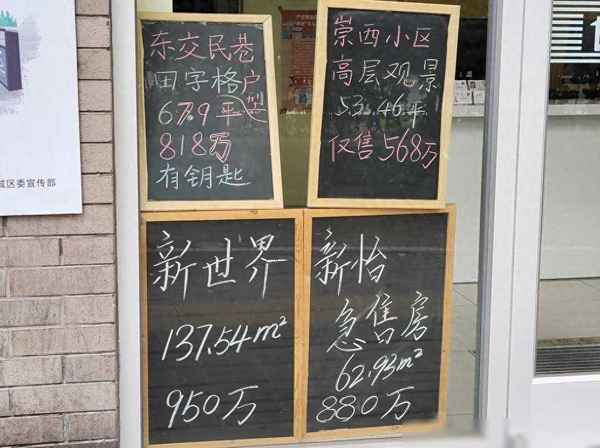 东交民巷
田字格户型
67.9平
818万
有钥匙
崇西小区
高层观景
53.46平
仅售568万
新世界
137.54m²
950万
新怡
急售房
62.93m²
880万
城区委宣传部